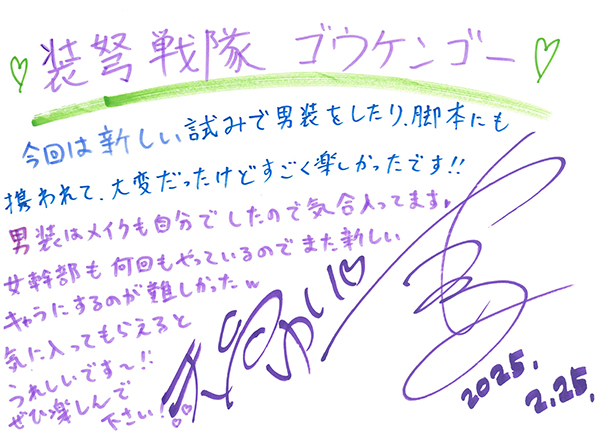 装弩戦隊 ゴウケンゴー
今回は新しい試みで男装をしたり、脚本にも
携われて、大変だったけどすごく楽しかったです!!
男装はメイクも自分でしたので気合入ってます。
女幹部も何回もやっているのでまた新しい
キャラにするのが難しかったw
気に入ってもらえると
うれしいです〜!!
ぜひ楽しんで
下さい!
2025.
2.25.